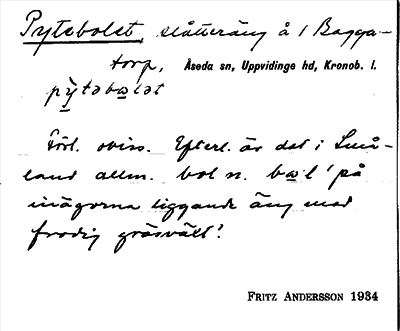 Pytebolet, slåtteräng å / Bagga-
torp, Åseda sn, Uppvidinge hd, Kronob. l.
pỳtəbωlət
Förl. oviss. Efterl. är det i Små-
land allm. bol n. bωl 'på
inägorna liggande äng med
frodig gräsvält'.
FRITZ ANDERSSON 1934